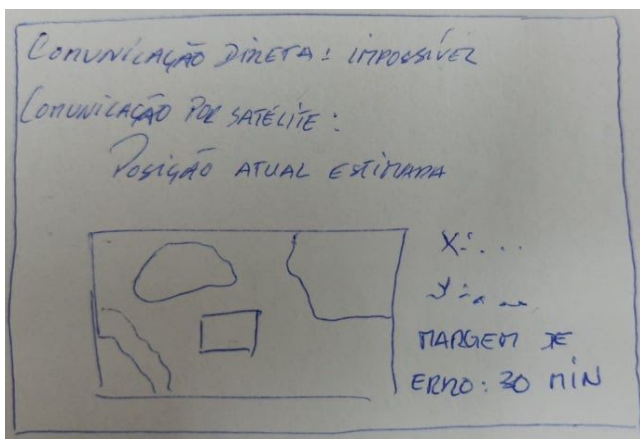 COMUNICAÇÃO DIRETA: IMPOSSÍVEL
COMUNICAÇÃO POR SATÉLITE:
POSIÇÃO ATUAL ESTIMADA
X: ...
Y: ...
MARGEM DE
ERRO: 30 MIN